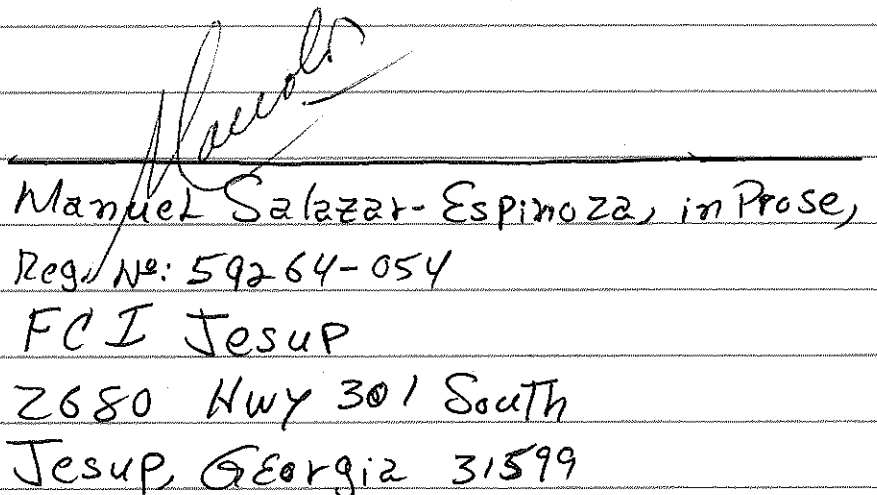 Manuel Salazar-Espinoza, in Prose,
Reg. Nº: 59264-054
FCI Jesup
2680 Hwy 301 South
Jesup, Georgia 31599